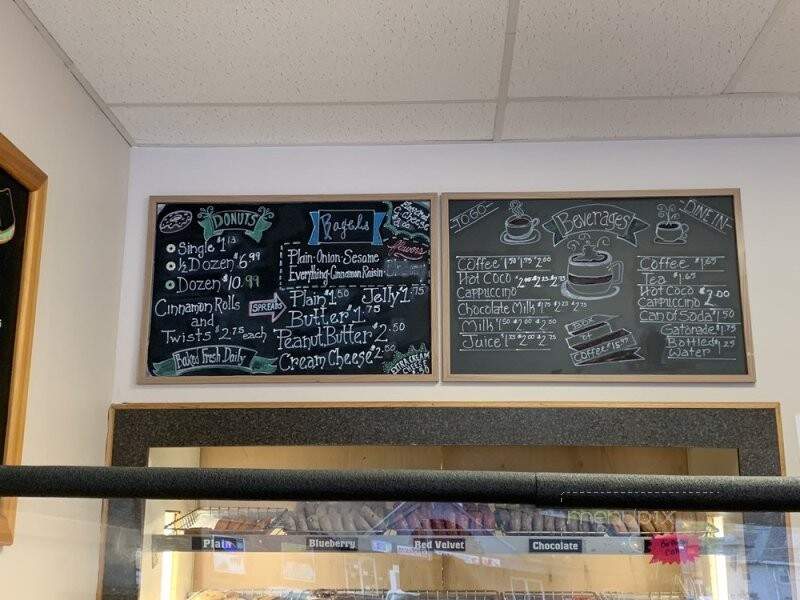 DONUTS
Single $1.15
½ Dozen $6.99
Dozen $10.99
Cinnamon Rolls
and
Twists $2.75 each
Baked Fresh Daily
Bagels
Flavors
Plain-Onion-Sesame
Everything-Cinnamon Raisin
SPREADS
Plain $1.50 Jelly $1.75
Butter $1.75
Peanut Butter $2.50
Cream Cheese $2.50
EXTRA CREAM
CHEESE
TO GO
Beverages
DINE IN
Coffee $1.50 $1.75 $2.00
Hot Coco
Cappuccino
Chocolate Milk $1.75 $2.25 $2.75
Milk $1.50 $2.00 $2.50
Juice $1.25 $2.00 $2.75
BOX
OF
Coffee
Coffee $1.65
Tea $1.65
Hot Coco
Cappuccino $2.00
Can of Soda $1.50
Gatorade $1.75
Bottled $1.25
Water
Plain
Blueberry
Red Velvet
Chocolate
menupix